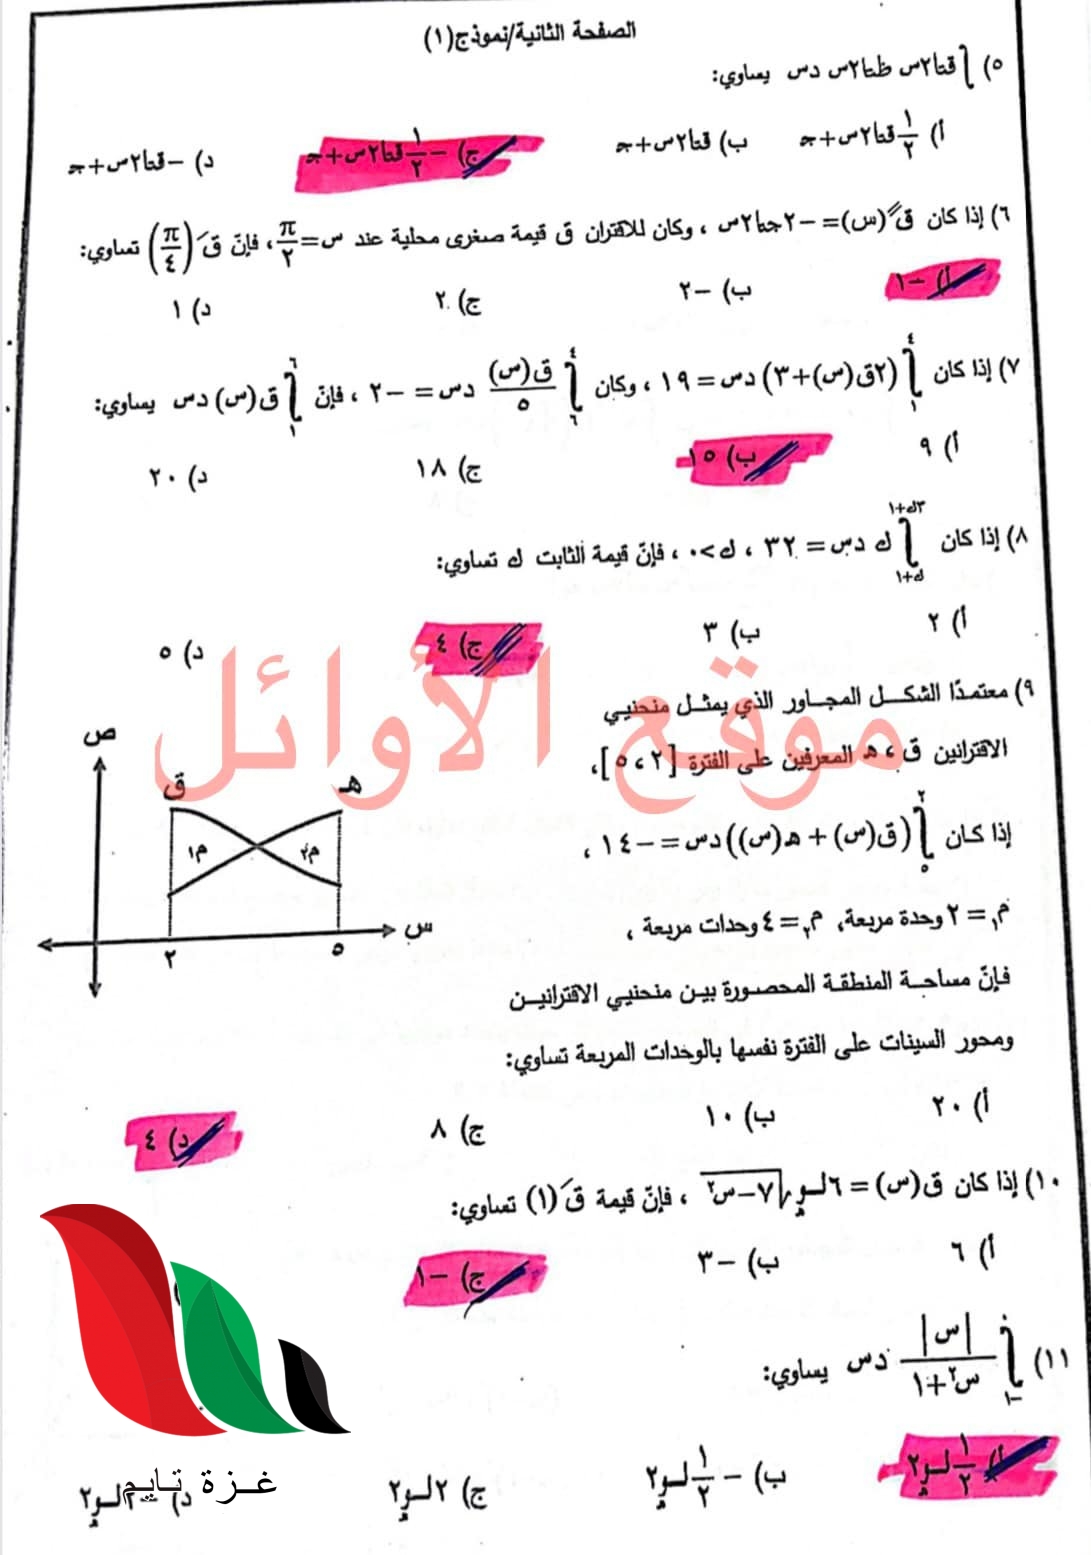 الصفحة الثانية/نموذج(١)
٥) ∫ قتا٢س ظتا٢س دس يساوي:
أ) ١/٢ قتا٢س+جـ ب) قتا٢س+جـ ج) –١/٢ قتا٢س+جـ د) –قتا٢س+جـ
٦) إذا كان قَ َ(س)= –٢جتا٢س ، وكان للاقتران ق قيمة صغرى محلية عند س=π/٢، فإنّ قَ(π/٤) تساوي:
أ) –١ ب) –٢ ج) ٢ د) ١
٧) إذا كان ∫₁⁴ (٢ق(س)+٣) دس = ١٩ ، وكان ∫₆⁴ ق(س)/٥ دس = –٢ ، فإنّ ∫₁⁶ ق(س) دس يساوي:
أ) ٩ ب) ١٥ ج) ١٨ د) ٢٠
٨) إذا كان ∫ ك دس = ٣٢ ، ك>٠ ، فإنّ قيمة الثابت ك تساوي:
٣ك+١
ك+١
أ) ٢ ب) ٣ ج) ٤ د) ٥
٩) معتمدًا الشكل المجاور الذي يمثل منحنيي
الاقترانين ق ، ه المعرفين على الفترة [٢ ، ٥]،
إذا كان ∫₅² (ق(س) + ه(س)) دس = –١٤ ،
م₁ = ٢ وحدة مربعة، م₂ = ٤ وحدات مربعة ،
فإنّ مساحة المنطقة المحصورة بين منحنيي الاقترانين
ومحور السينات على الفترة نفسها بالوحدات المربعة تساوي:
ص
ق
هـ
م₁
م₂
س
٢
٥
أ) ٢٠ ب) ١٠ ج) ٨ د) ٤
١٠) إذا كان ق(س) = ٦لــوهـ √(٧–س²) ، فإنّ قيمة قَ(١) تساوي:
أ) ٦ ب) –٣ ج) –١
١١) ∫ |س|/(س²+١) دس يساوي:
٠
–١
أ) ١/٢ لــوهـ٢ ب) –١/٢ لــوهـ٢ ج) ٢لــوهـ٢ د) –٢لــوهـ٢
موقع الأوائل
غزة تايم